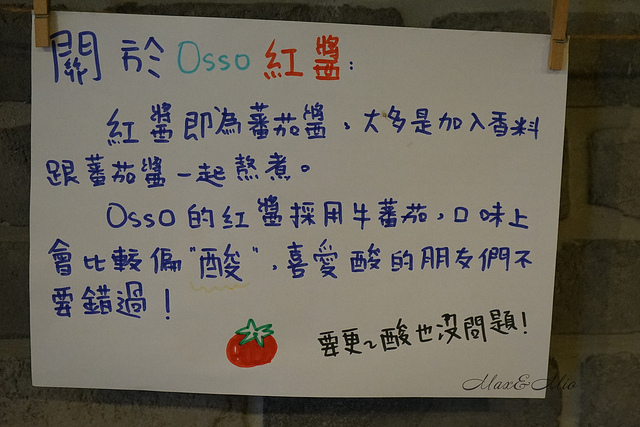 關於Osso紅醬:
紅醬即為蕃茄醬、大多是加入香料
跟蕃茄醬一起熬煮。
Osso的紅醬採用牛蕃茄,口味上
會比較偏"酸",喜愛酸的朋友們不
要錯過!
要更~酸也沒問題!
Max&Mio